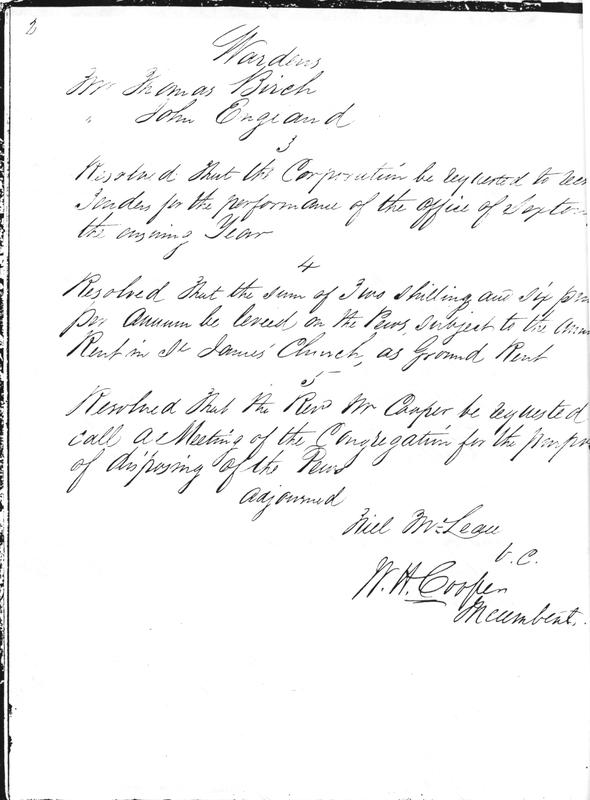 2
Wardens
Mr Thomas Birch
" John England
3
Resolved That the Corporation be requested to
Tenders for the performance of the office of Sexton
the ensuing Year
4
Resolved That the sum of Two shilling and six
per annum be levied on the Pews, subject to the
Rent in St James' Church, as Ground Rent
5
Resolved That the Revd Mr Cooper be requested
call a Meeting of the Congregation for the
of disposing of the Pews
Adjourned
Niel McLean
V.C.
W. H. Cooper
Incumbent.